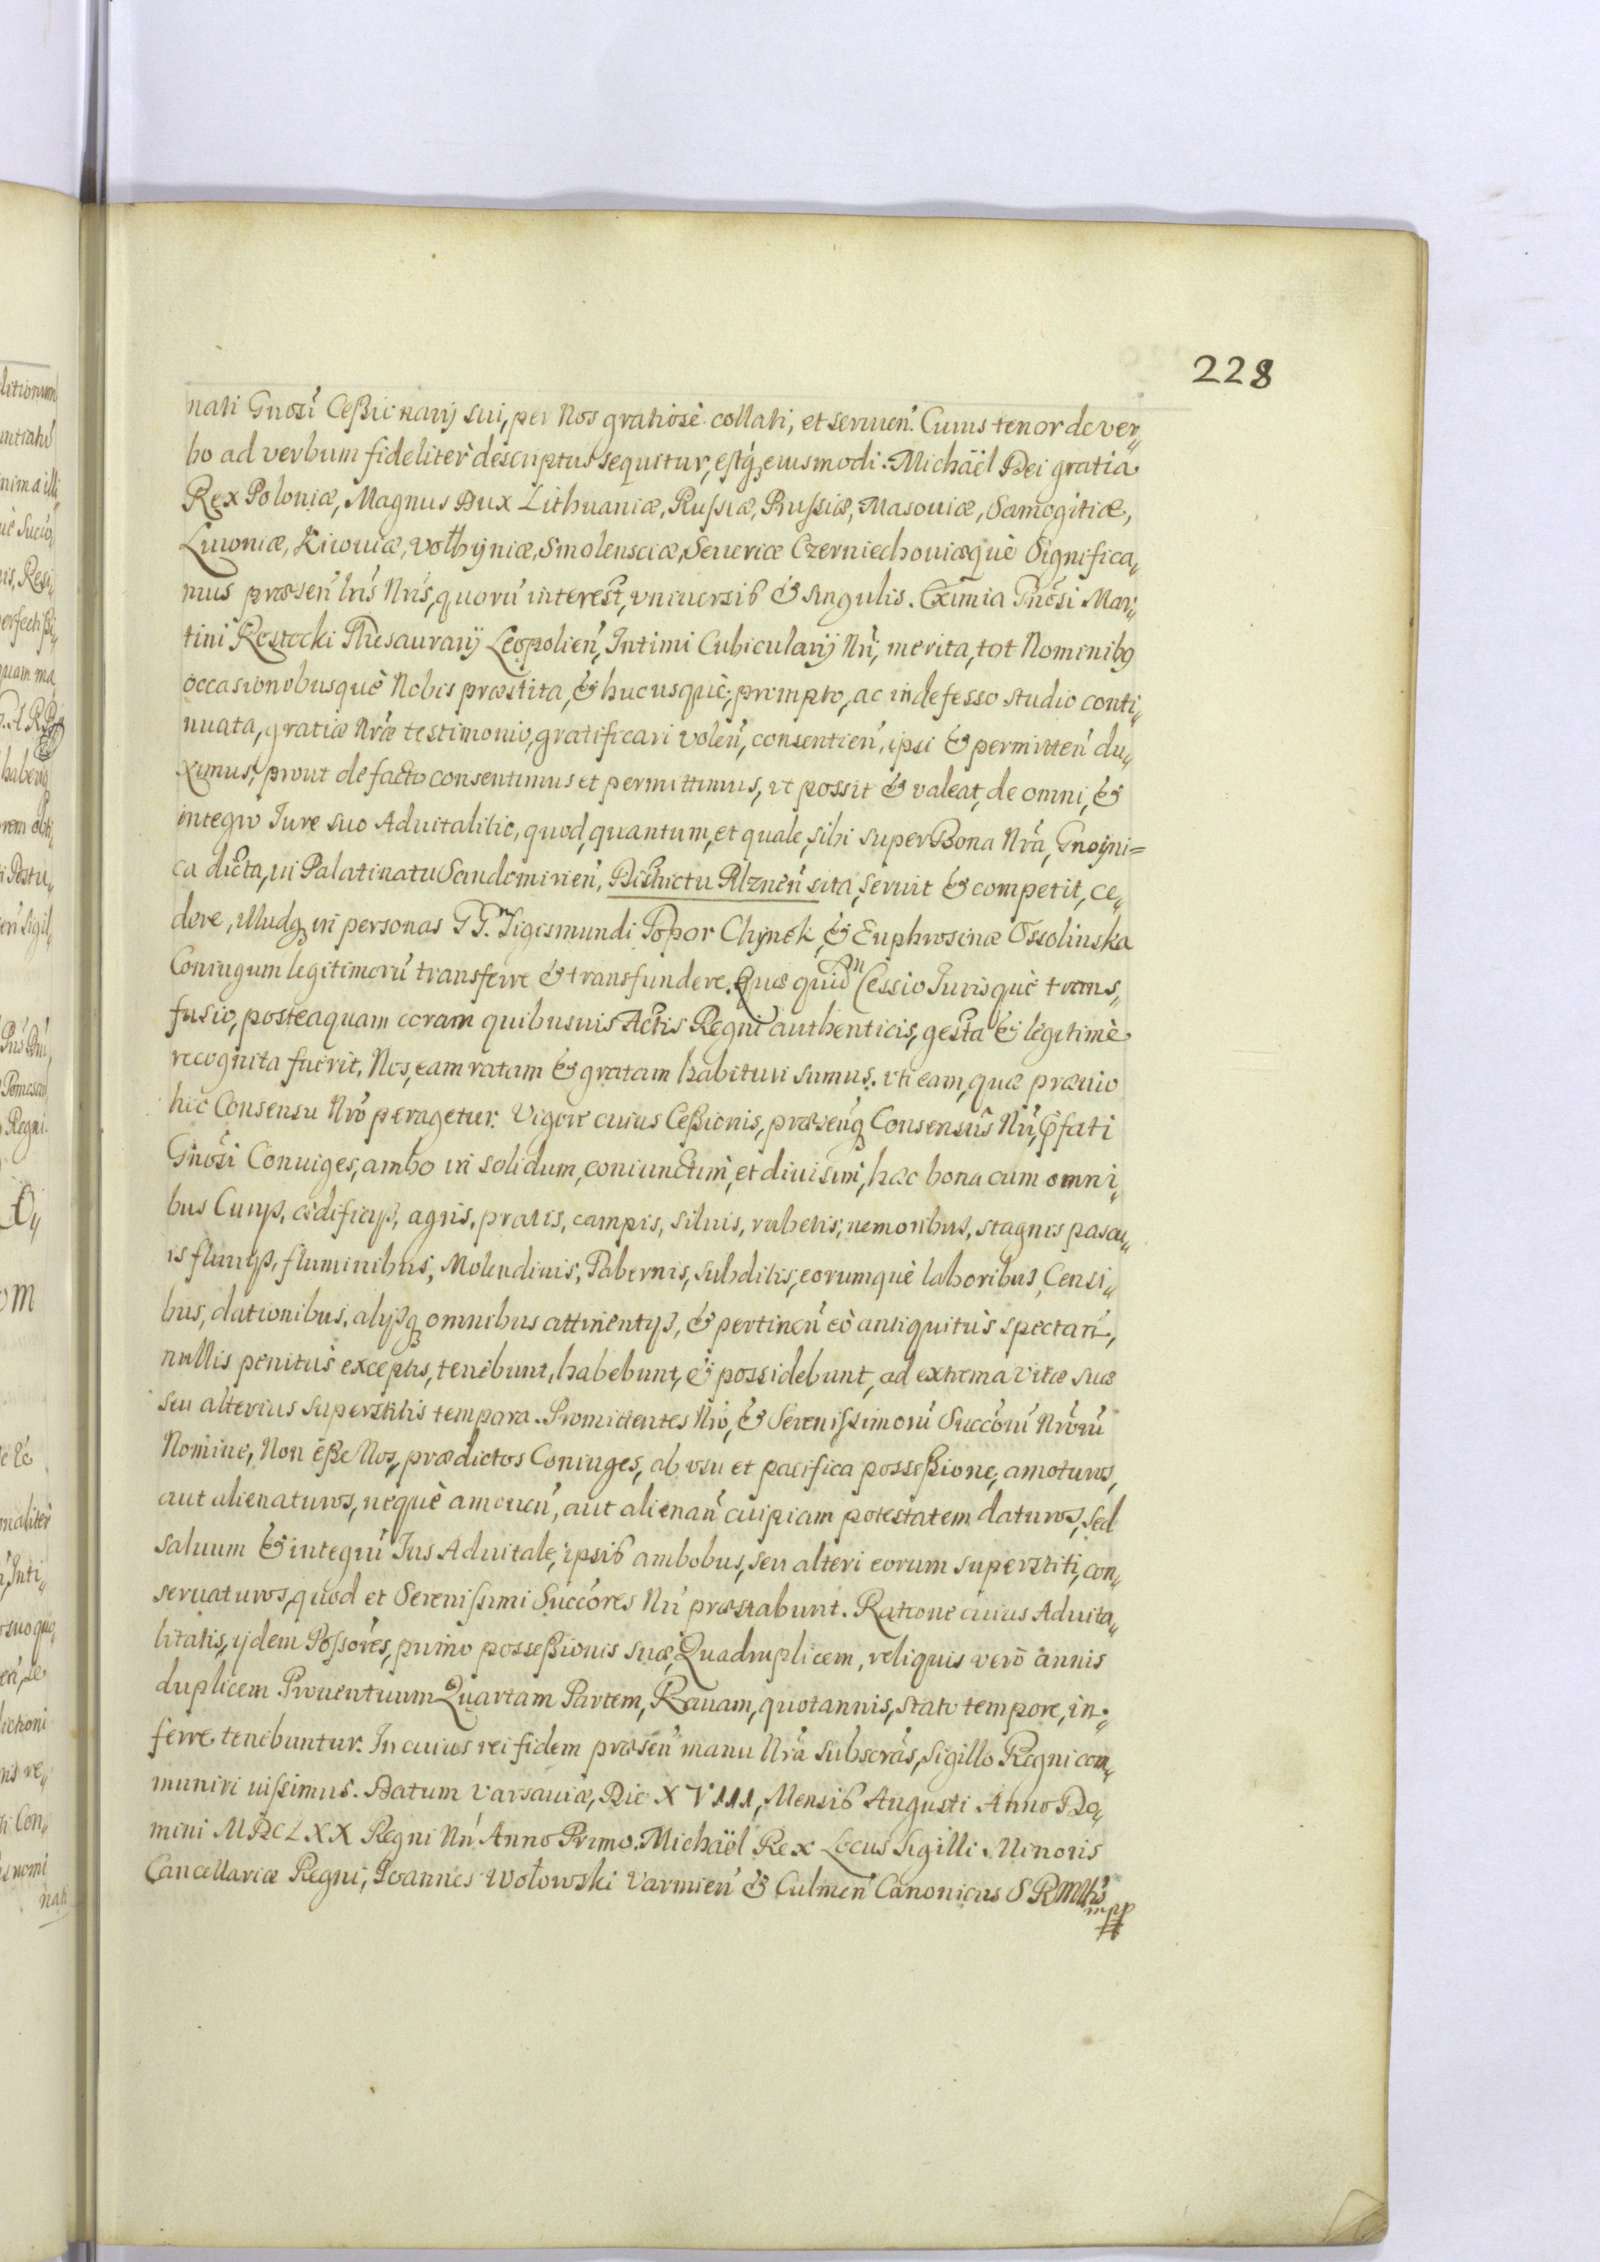 228
nati Gnosi Ceßionarij sui, per Nos gratiosè collati, et seruien. Cuius tenor de ver„
bo ad verbum fideliter descriptus sequitur, estq, eiusmodi. Michaël Dei gratia
Rex Poloniæ, Magnus Dux Lithuaniæ, Russiæ, Prussiæ, Masouiæ, Samogitiæ,
Liuoniæ, Kiiouiæ, Volhyniæ, Smolensciæ, Seueriæ Czerniechouiæquè Significa„
mus præsen lris Nris, quorū interest, vniuersis & singulis. Eximia Gnosi Mar„
tini Restecki Thesaurarij Leopolien, Intimi Cubicularij Nri, merita, tot Nominibq
occasionobusquè Nobis præstita, & hucusquè, prompto, ac indefesso studio conti„
nuata, gratiæ Nræ testimonio, gratificari volen, consentien, ipsi & permitten du„
ximus, prout de facto consentimus et permittimus, vt possit & valeat, de omni, &
integro Iure suo Aduitalitio, quod, quantum, et quale, sibi super Bona Nra, Gnoyni=
ca dicta, in Palatinatu Sandomirien, Districtu Pilznen sita, seruit & competit, ce„
dere, illudq in personas GG.n Sigismundi Topor Chynek, & Euphrosinæ Ossolinska
Coniugum legitimorū transferre & transfundere. Quæ quidm Cessio Iurisquè trans„
fusio, posteaquam coram quibusuis Actis Regni authenticis, gesta & legitimè
recognita fuerit, Nos, eam ratam & gratam habituri sumus. vti eam, quæ præuio
hic Consensu Nro peragetur. Vigore cuius Ceßionis, præsenq Consensûs Nri, Pfati
Gnosi Coniuges, ambo in solidum, coniunctim, et diuisim, hæc bona cum omni„
bus Curijs, ædificijs, agris, pratis, campis, siluis, rubetis, nemoribus, stagnis pascu„
is fluuijs, fluminibus, Molendinis, Tabernis, subditis, eorumquè laboribus, Censi„
bus, dationibus, alijsq omnibus attinentijs, & pertinen eò antiquitùs spectan,
nullis penitus exceptis, tenebunt, habebunt, & possidebunt, ad extrema vitæ suæ
seu alterius superstitis tempora. Promittentes Nro, & Serenissimorū Succorū Nrorū
Nomine, Non eße Nos, prædictos Coniuges, ab vsu et pacifica posseßione, amoturos,
aut alienaturos, nequè amouen, aut alienan cuipiam potestatem daturos, sed
saluum & integrū Ius Aduitale, ipsis ambobus, seu alteri eorum superstiti, con„
seruaturos, quod et Serenissimi Succores Nri præstabunt. Ratione cuius Aduita„
litatis, ijdem Possores, primo posseßionis suæ, Quadruplicem, reliquis verò annis
duplicem Prouentuum Quartam Partem, Rauam, quotannis, stato tempore, in„
ferre tenebuntur. In cuius rei fidem præsen manu Nra subscras, sigillo Regni com„
muniri iussimus. Datum Varsauiæ, Die XVIII, Mensis Augusti Anno Do„
mini MDCLXX Regni Nri Anno Primo. Michaël Rex Locus Sigilli Minoris
Cancellariæ Regni, Ioannes Wołowski Varmien & Culmen Canonicus S R Mtis
mpp